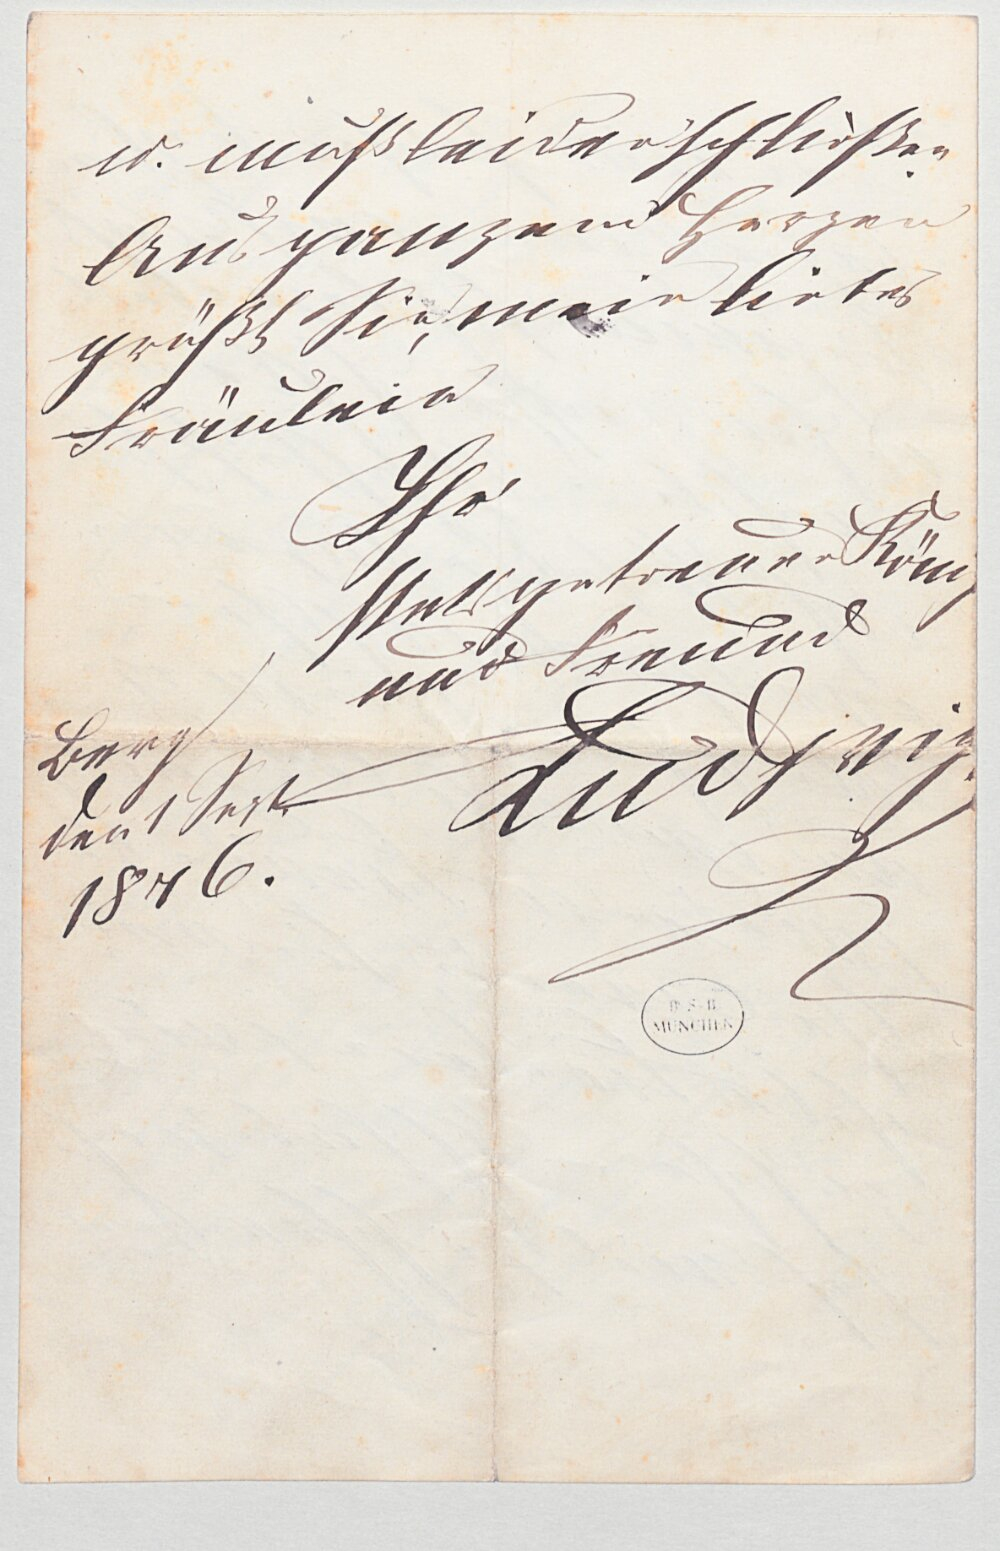 u. muß leider schließen.
Aus ganzem Herzen
grüßt Sie, mein liebes
Fräulein
Ihr
stets getreuer König
und Freund
Ludwig.
Berg
den 1 Sept.
1876.
B. S. B.
MÜNCHEN